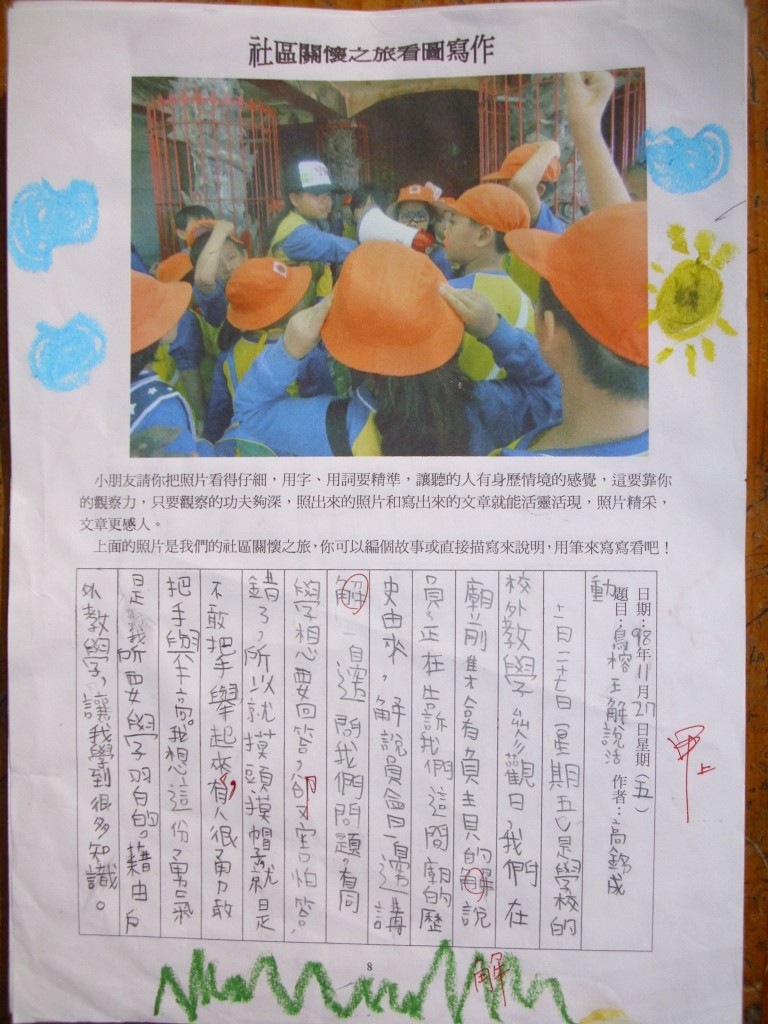 社區關懷之旅看圖寫作
小朋友請你把照片看得仔細，用字、用詞要精準，讓聽的人有身歷情境的感覺，這要靠你
的觀察力，只要觀察的功夫夠深，照出來的照片和寫出來的文章就能活靈活現，照片精采，
文章更感人。
上面的照片是我們的社區關懷之旅，你可以編個故事或直接描寫來說明，用筆來寫寫看吧！
日期：98年11月27日星期（五）
題目：鳥榕王解說活動 作者：高錦成
十一月二十七日（星期五）是學校的
校外教學參觀日，我們在
廟前集合有負責的解說
員正在告訴我們這間廟的歷
史由來，解說員會一邊講
解一邊問我們問題，有同
學想要回答，卻又害怕答
錯了，所以就摸頭摸帽就是
不敢把手舉起來，有人很勇敢
把手舉高高。我想這份勇氣
是我所要學習的。藉由戶
外教學，讓我學到很多知識。
甲上
解
8